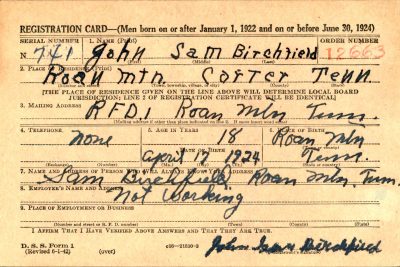 REGISTRATION CARD—(Men born on or after January 1, 1922 and on or before June 30, 1924)
SERIAL NUMBER 1. NAME (Print) ORDER NUMBER
N 741 John Sam Birchfield 12663
(First) (Middle) (Last)
2. PLACE OF RESIDENCE (Print)
Roan Mtn Carter Tenn
(Town, township, village, or city) (County) (State)
[THE PLACE OF RESIDENCE GIVEN ON THE LINE ABOVE WILL DETERMINE LOCAL BOARD
JURISDICTION; LINE 2 OF REGISTRATION CERTIFICATE WILL BE IDENTICAL]
3. MAILING ADDRESS
RFD1 Roan Mtn Tenn.
[Mailing address if other than place indicated on line 2. If same insert word same]
4. TELEPHONE 5. AGE IN YEARS 6. PLACE OF BIRTH
None 18 Roan Mtn
DATE OF BIRTH
April 17 1924 Tenn.
7. NAME AND ADDRESS OF PERSON WHO WILL ALWAYS KNOW YOUR ADDRESS
Sam Birchfield Roan Mtn. Tenn.
8. EMPLOYER'S NAME AND ADDRESS
Not Working
9. PLACE OF EMPLOYMENT OR BUSINESS
(Number and street or R. F. D. number) (Town) (County) (State)
I AFFIRM THAT I HAVE VERIFIED ABOVE ANSWERS AND THAT THEY ARE TRUE.
D. S. S. Form 1
(Revised 6-1-42) (over) John Sam Birchfield